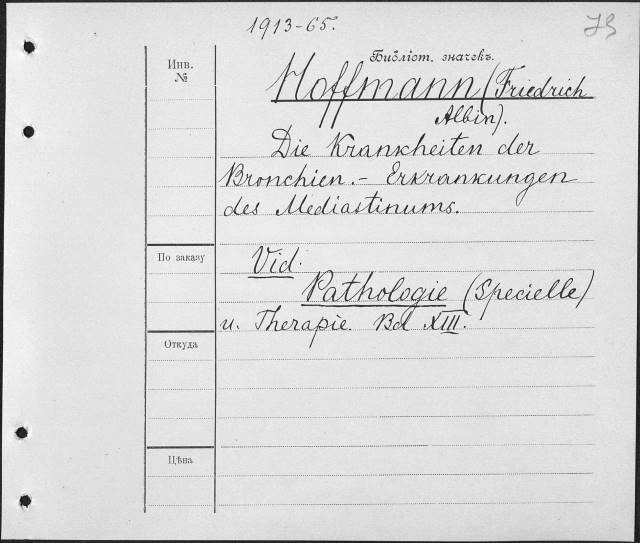 1913-65.
Инв.
№
Библіот. значекъ.
Hoffmann (Friedrich
Albin).
Die Krankheiten der
Bronchien. - Erkrankungen
des Mediastinums.
По заказу
Vid.
Pathologie (Specielle)
u. Therapie. Bd XIII.
Откуда
Цѣна